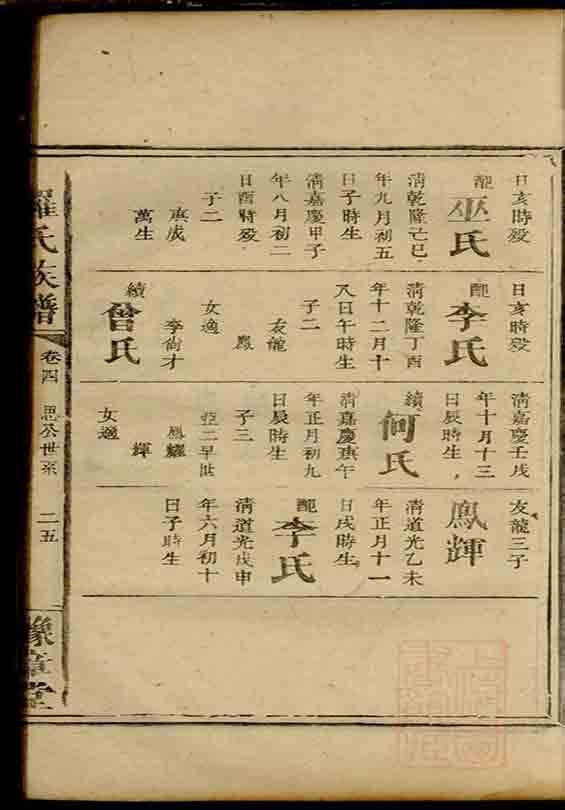 日亥時殁
配
巫氏
清乾隆己巳
年九月初五
日子時生
清嘉慶甲子
年八月初二
日酉時殁
子二
庚成
萬生
日亥時殁
配
李氏
清乾隆丁酉
年十二月十
八日午時生
子二
友龍
鳳
女適
李尙才
續
曾氏
清嘉慶壬戌
年十月十三
日辰時生
續
何氏
清嘉慶庚午
年正月初九
日辰時生
子三
亞二早世
鳳耀
輝
女適
友龍三子
鳳輝
清道光乙未
年正月十一
日戌時生
配
李氏
清道光戊申
年六月初十
日子時生
羅氏族譜
卷四
思公世系
二五
豫章堂